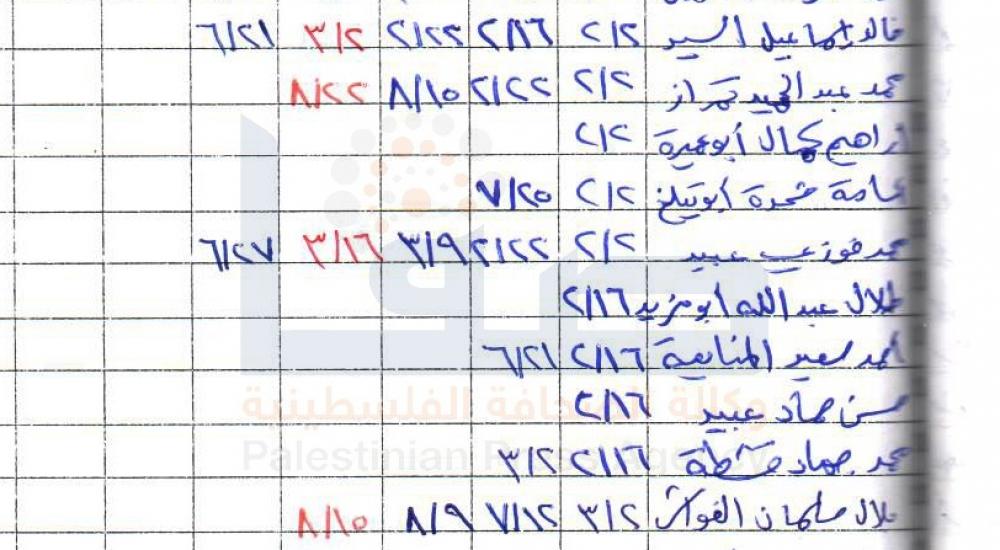 خالد إسماعيل السير ٢/٢ ٢/١٦ ٢/٢٣ ٣/٢ ٦/٢١
محمد عبد الحميد تمراز ٢/٢ ٢/٢٢ ٨/١٥ ٨/٢٢
ابراهيم كمال أبو عميرة ٢/٢
٢/٢ ٧/٢٥
محمد فوزي عبيد ٢/٢ ٢/٢٢ ٣/٩ ٣/١٦ ٦/٢٧
طلال عبد الله أبو مزيد ٢/١٦
أحمد سعيد المنايعة ٢/١٦ ٦/٢١
حسن حماد عبيد ٢/١٦
محمد جهاد مشطة ٢/١٦ ٣/٢
بلال سلمان ٣/٢ ٧/١٢ ٨/٩ ٨/١٥
صفا
وكالة الصحافة الفلسطينية
Palestinian Press Agency